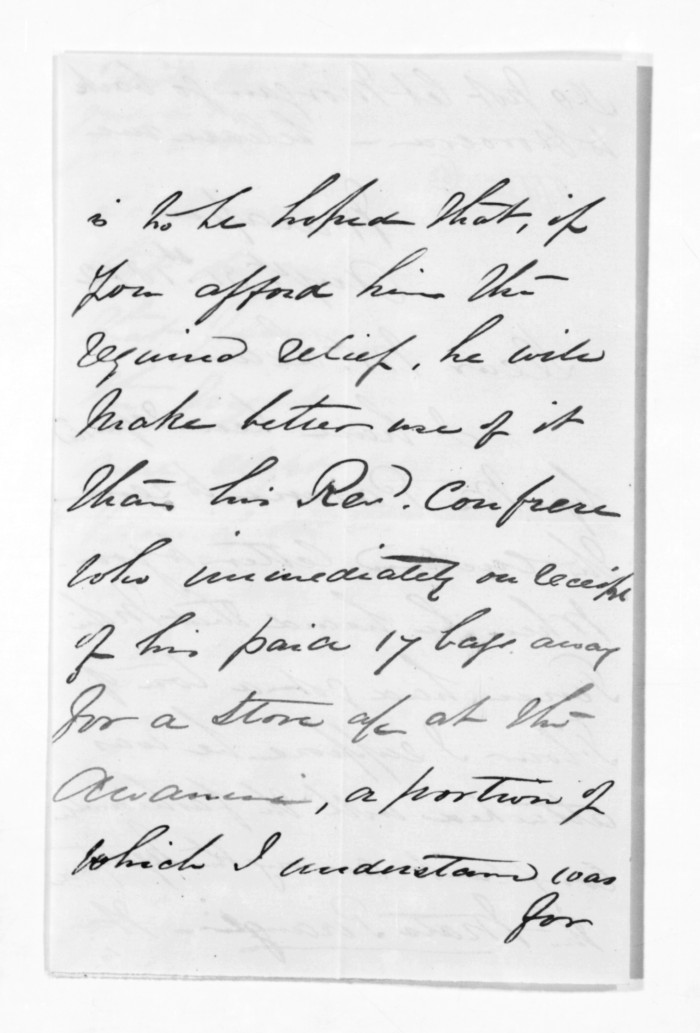 is to be hoped that, if
you afford him the
required relief, he will
make better use of it
than his Revd. Confrere
who immediately on receipt
of his paid 17 bags away
for a store a/c at the
Awamui, a portion of
which I understand was
for